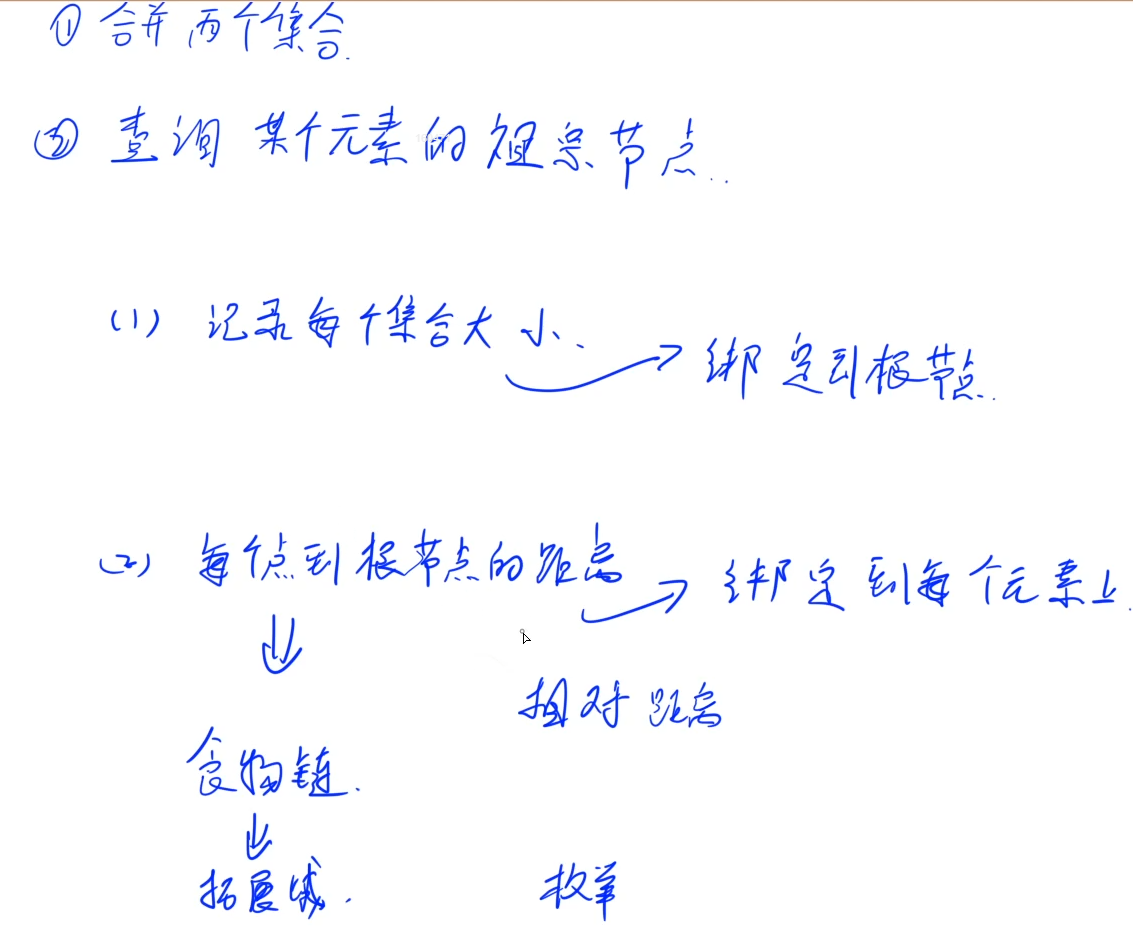 ① 合并两个集合.
② 查询某个元素的祖宗节点..
(1) 记录每个集合大小、
绑定到根节点..
(2) 每个点到根节点的距离
绑定到每个元素上.
相对距离
食物链.
拓展域.
枚举